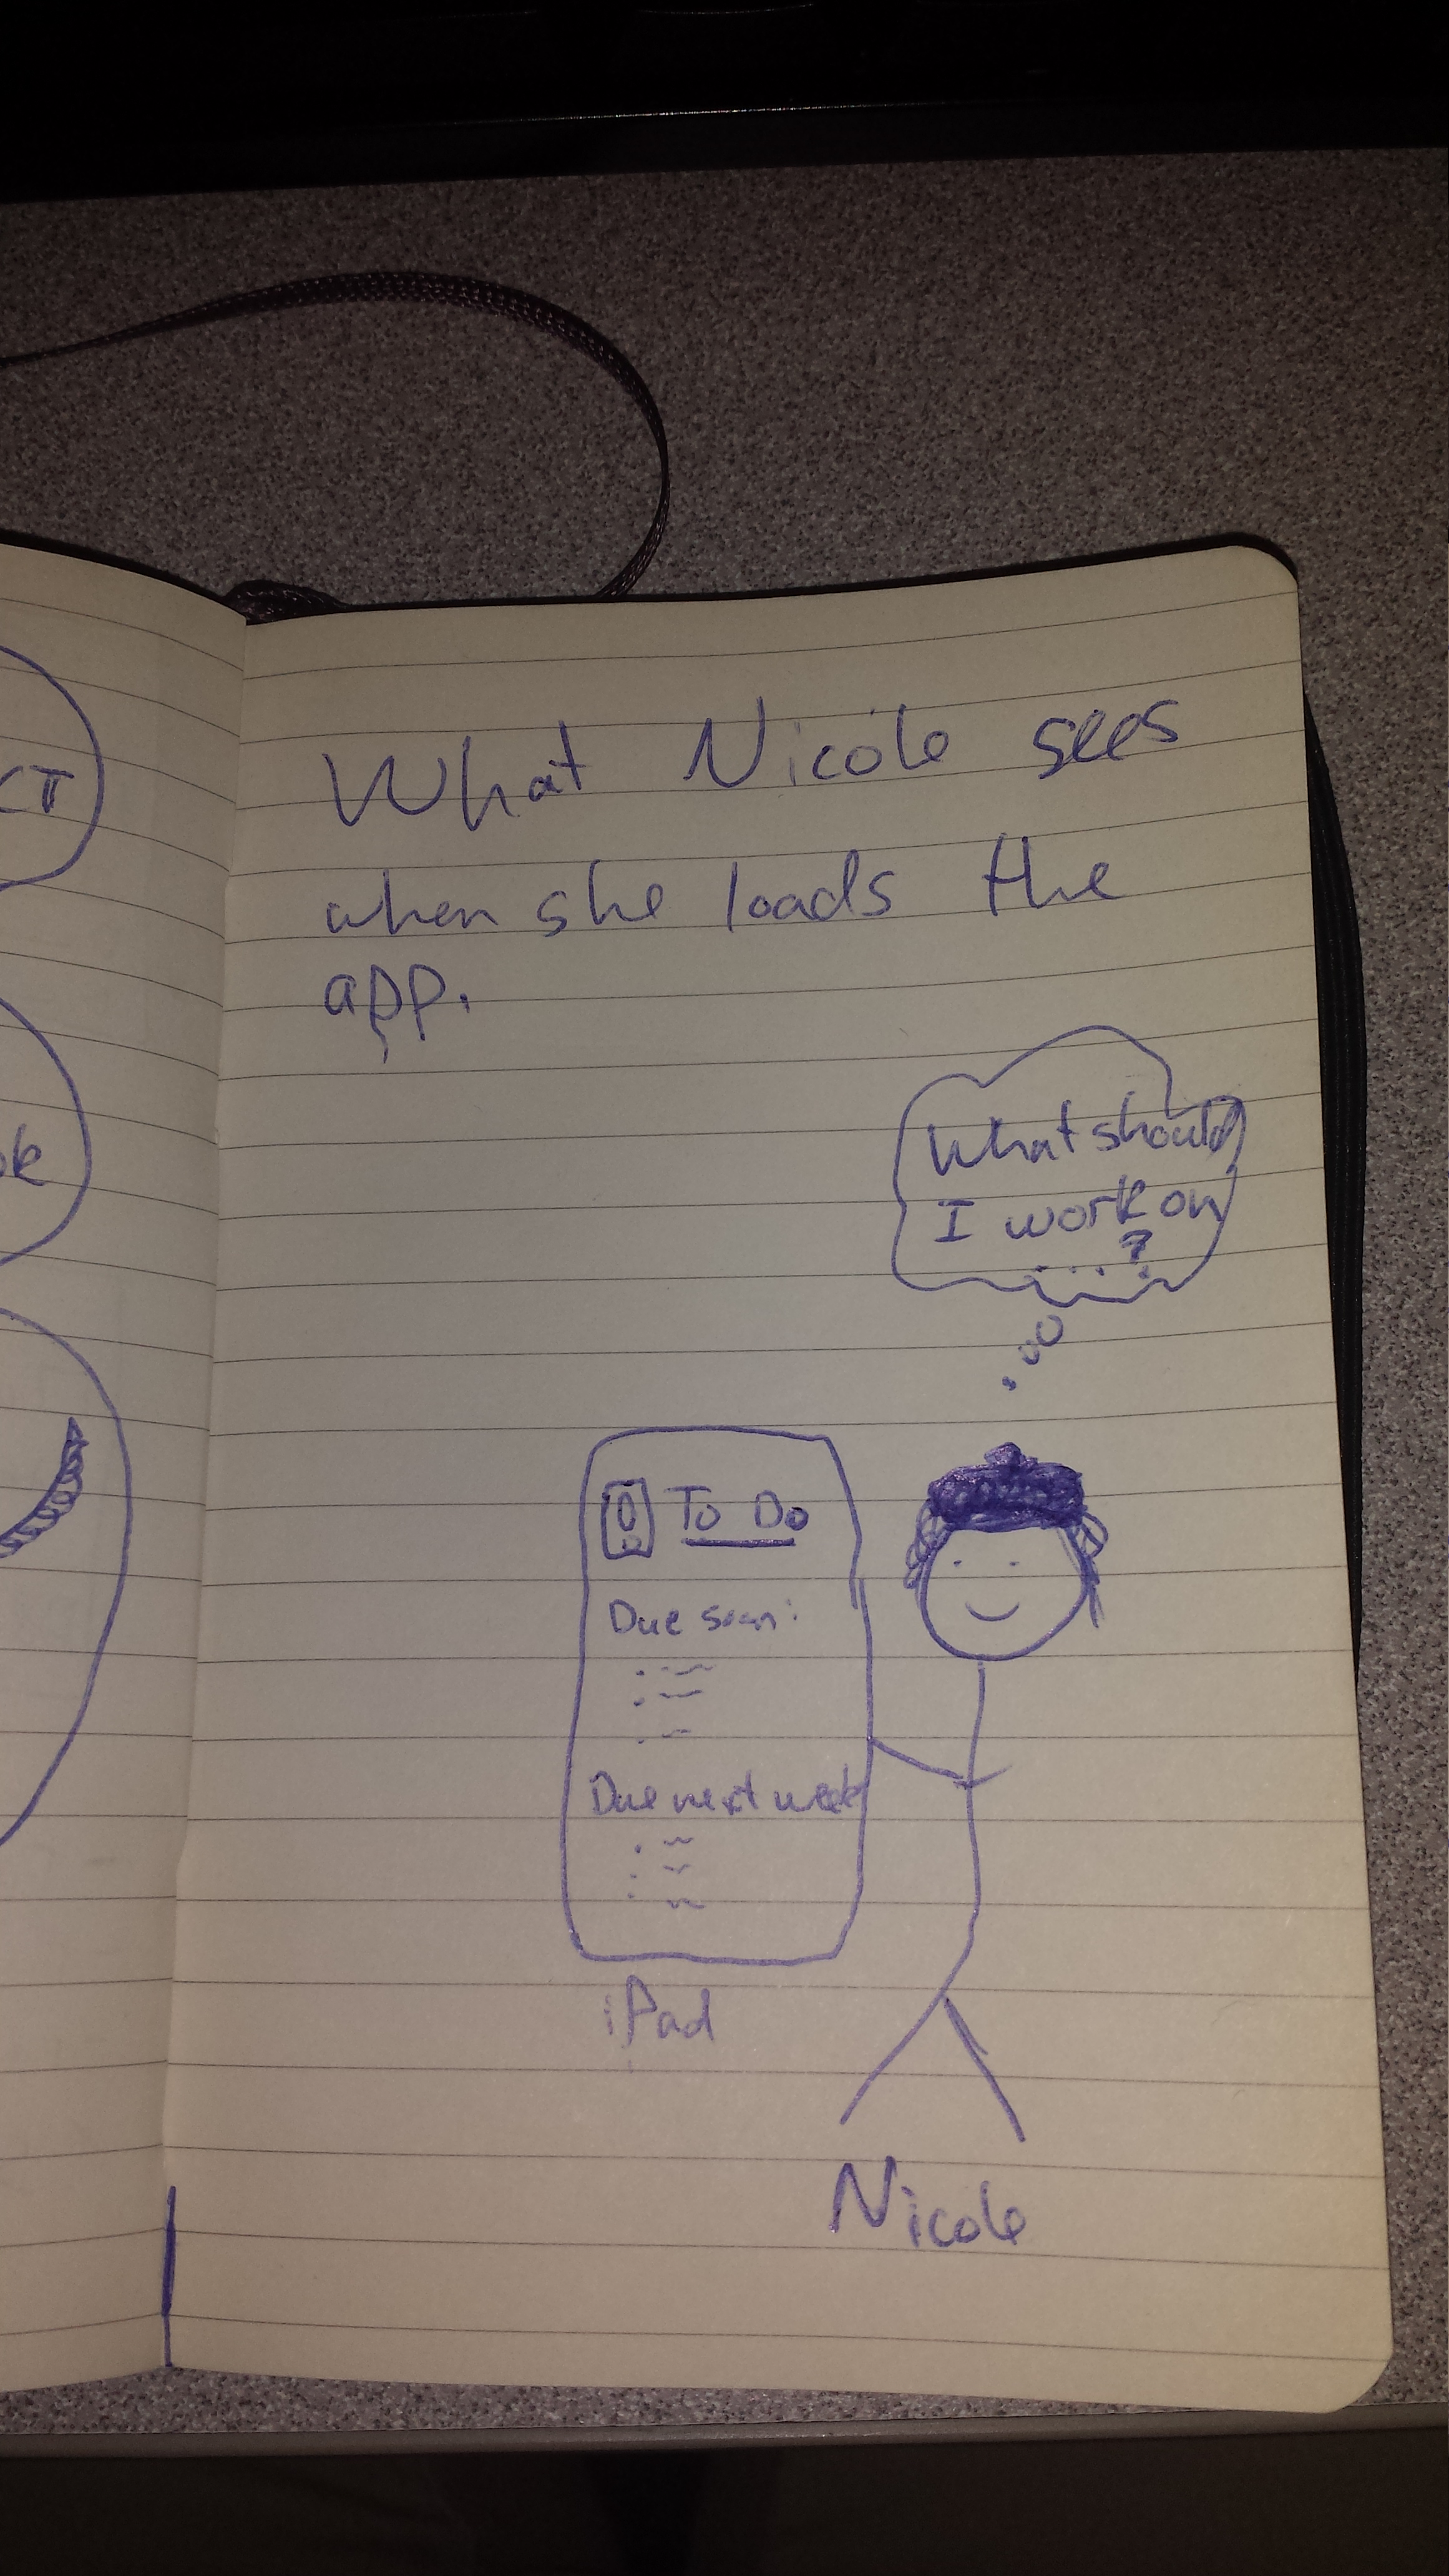 What Nicole sees
when she loads the
app.
What should
I work on
...?
To Do
Due soon:
Due next week
iPad
Nicole
CT